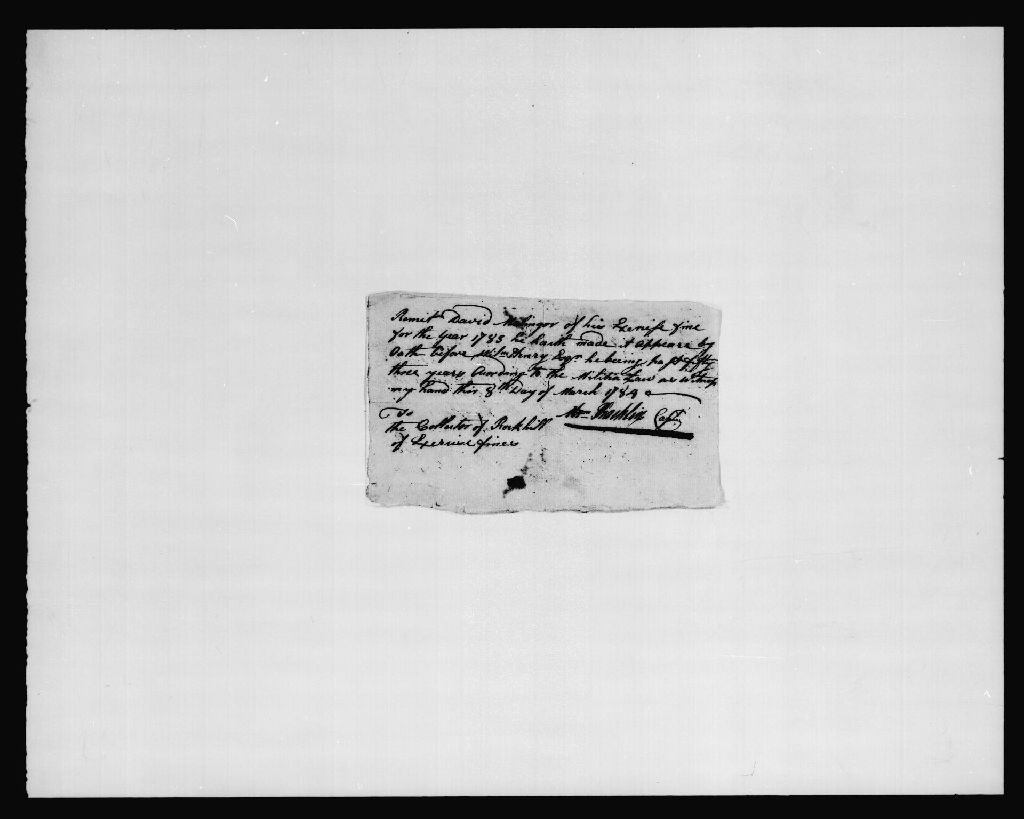 Remit David Metinger of his Exersise fine
for the year 1783 he hath made it appeare by
Oath before Wm Henry Esqr. he being past fifty
three years Acording to the Militia Law as witness
my hand this 8th Day of March 1784
To
the Collector of Rockhill
of Exersise fines
Capt.